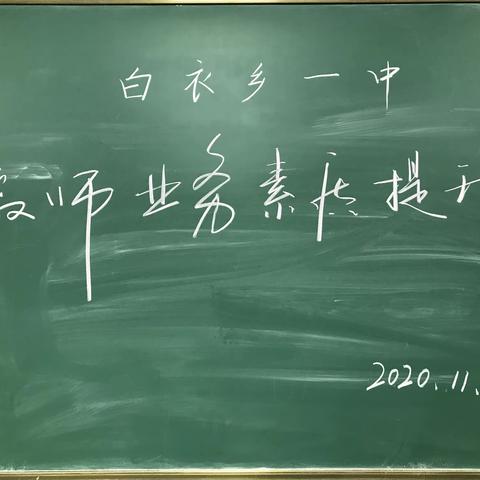 白衣乡一中
教师业务素质提升
2020.11.